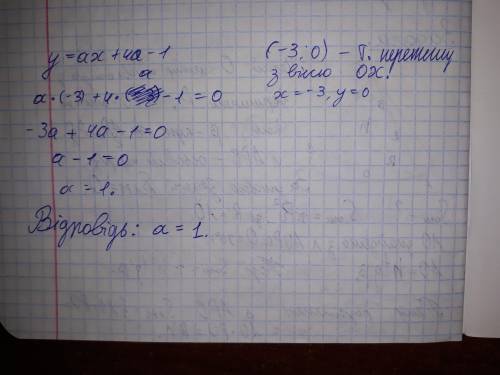 y = ax + 4a - 1
a · (-3) + 4 · a - 1 = 0
-3a + 4a - 1 = 0
a - 1 = 0
a = 1.
Відповідь: a = 1.
(-3; 0) – т. перетину
з віссю OX.
x = -3, y = 0